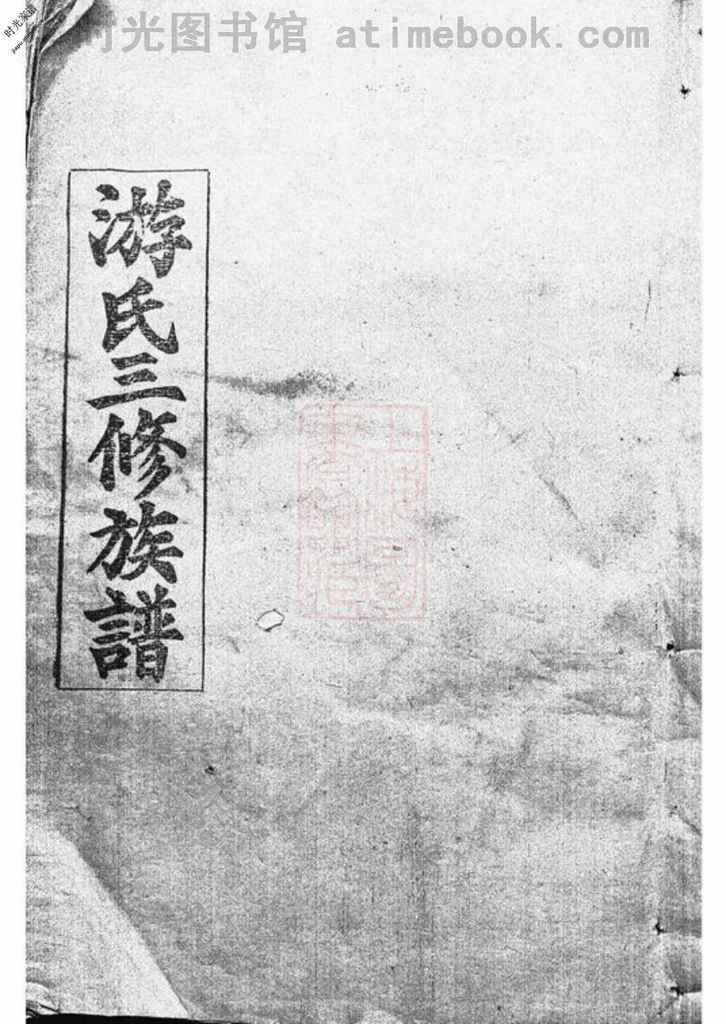 时光图书馆 atimebook.com
游氏三修族譜